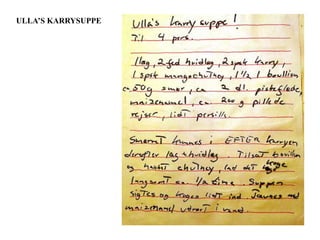 ULLA'S KARRYSUPPE
Ulla's karry suppe!
Til 4 pers.
1 løg, 2 fed hvidløg, 2 spsk karry,
1 spsk mangochutney, 1 1/2 l bouillon
ca 50g smør, ca 2 dl. piskefløde,
maizenamel, ca. 200 g pillede
rejer, lidt persille.
Smørret kommes i EFTER karryen
derefter løg & hvidløg. Tilsæt bouillon
og hakket chutney, lad det koge
langsomt ca. 1/2 time. Suppen
sigtes og koges lidt ind Jævnes med
maizenamel udrørt i vand.